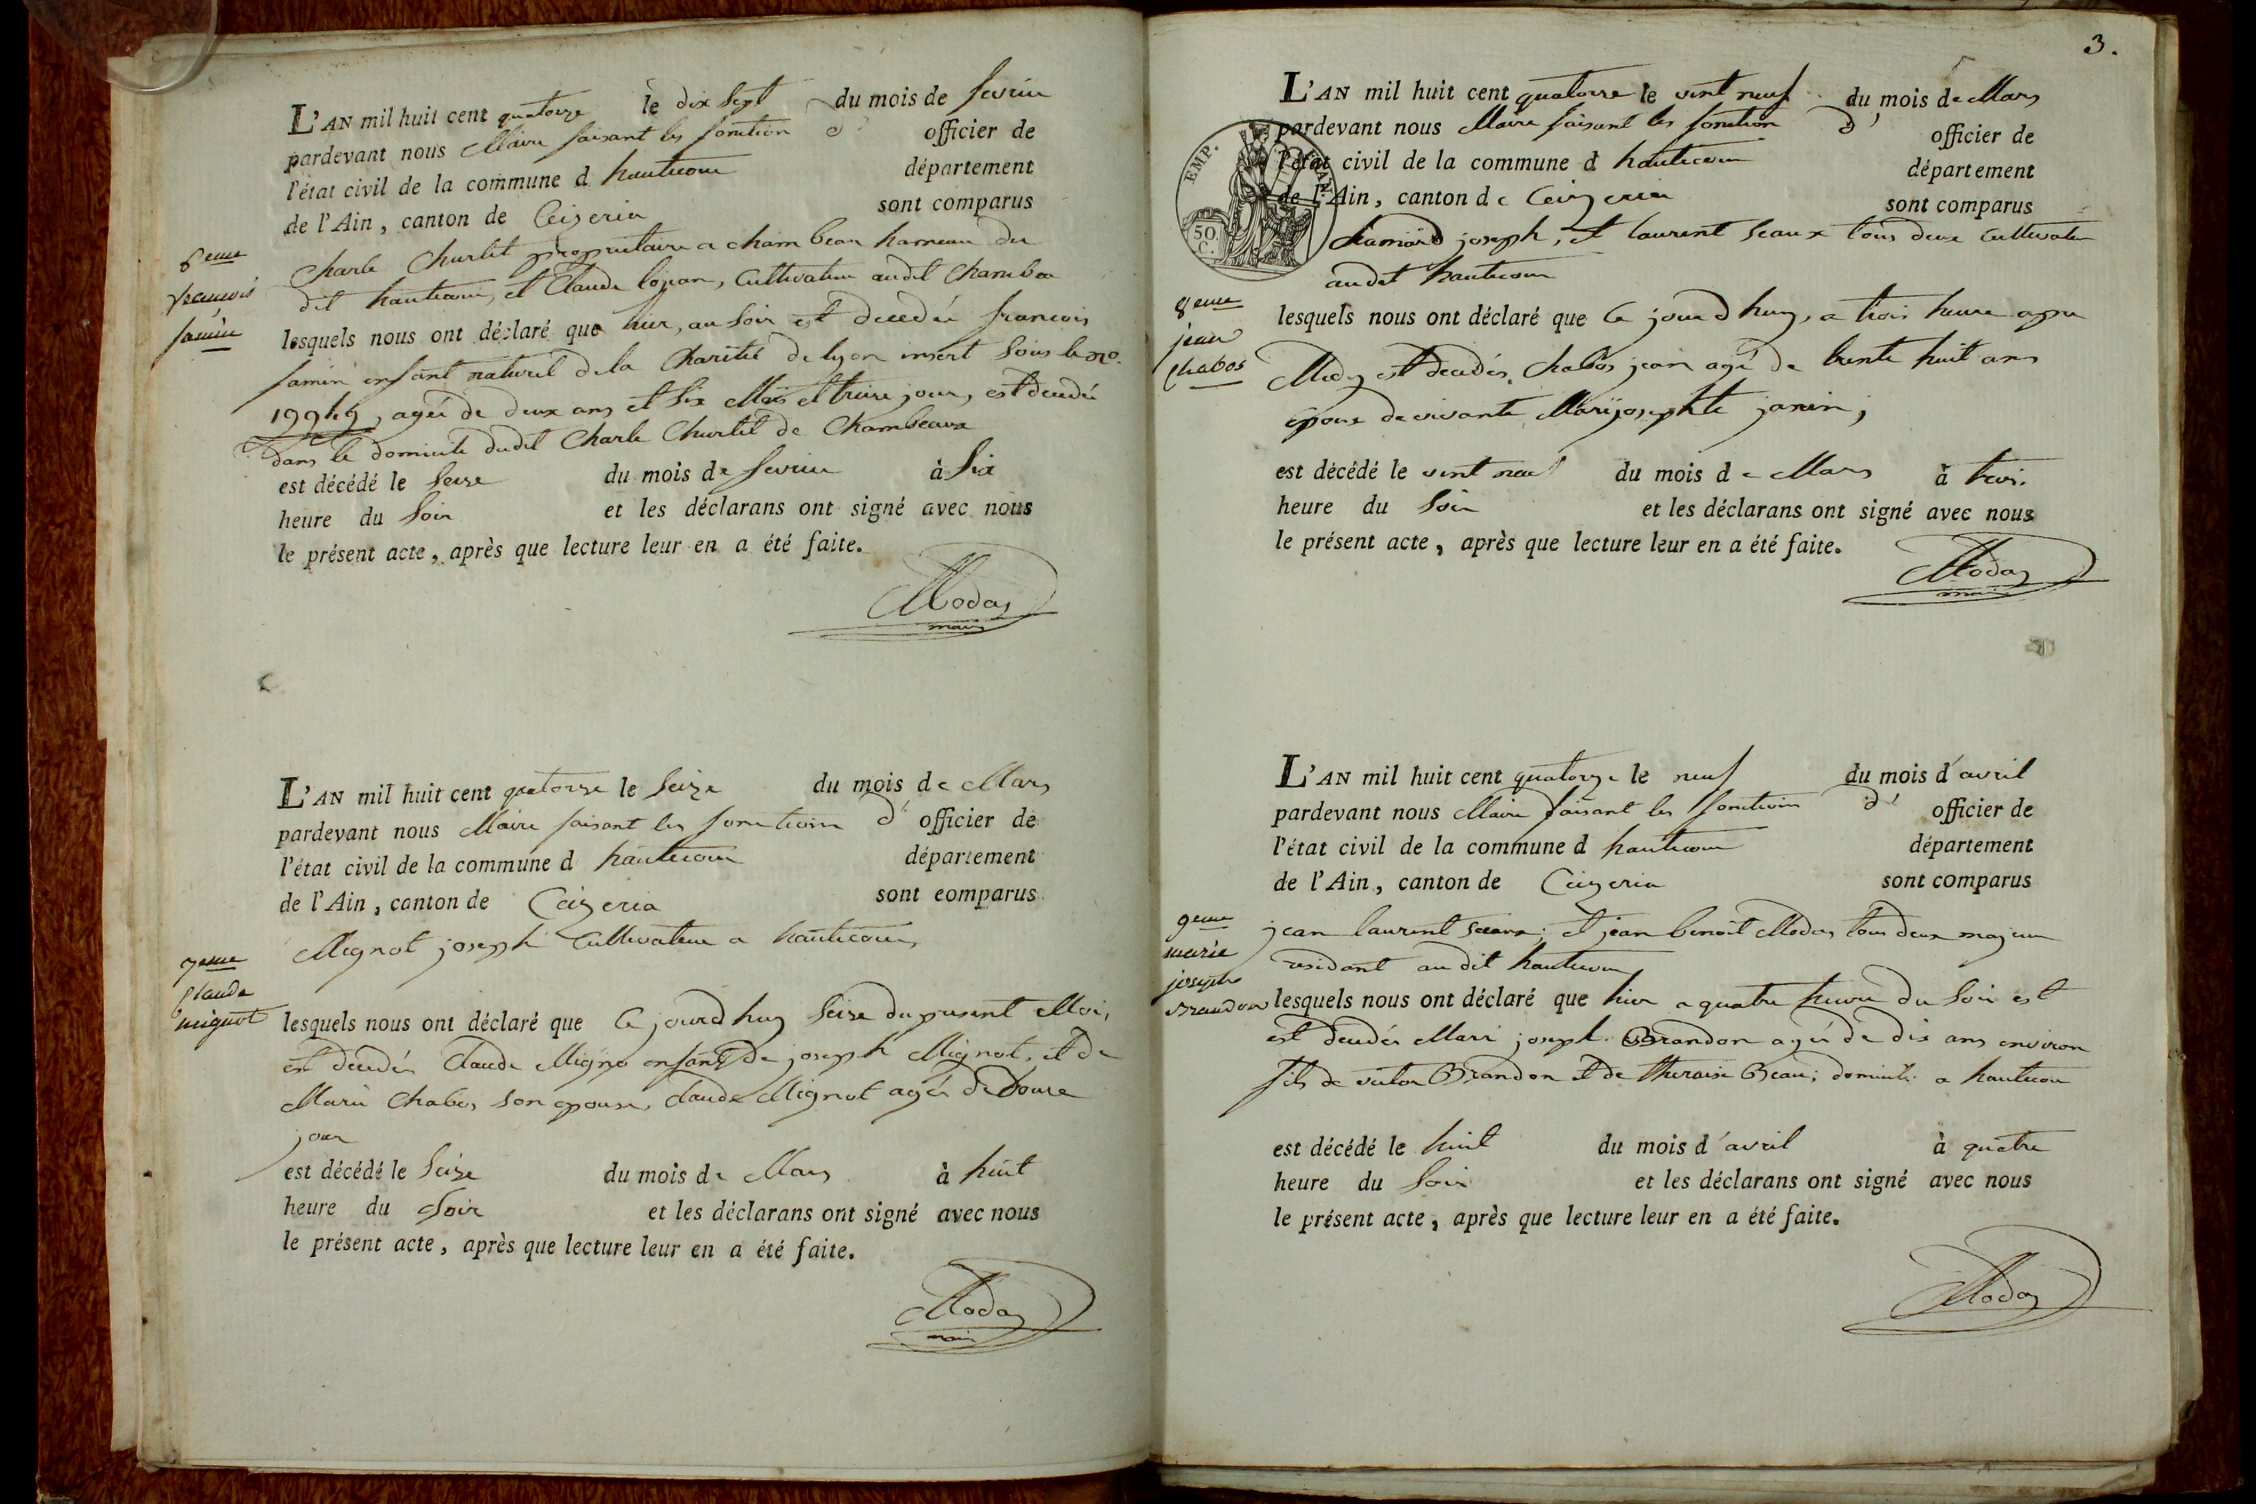 L'AN mil huit cent quatorze le dix sept du mois de fevrier
pardevant nous Maire faisant les fonction d' officier de
l'état civil de la commune d hautecour département
de l'Ain, canton de Ceizeria sont comparus
6eme
francois
Charle Churlet propriétaire a chambeau hameau du
dit hautecour, et Claude, Cultivateur audit Chambeau
lesquels nous ont déclaré que hier, au soir est decedée francois
enfant naturel de la Charité de lyon insert sous le no.
19949, agée de deux ans et six Mois et treize jour, est decedée
dans le domicile dudit Charle Churlet de Chambeaux
est décédé le seize du mois de fevrier à six
heure du soir et les déclarans ont signé avec nous
le présent acte, après que lecture leur en a été faite.
Modas
maire
L'AN mil huit cent quatorze le seize du mois de Mars
pardevant nous Maire faisant les fonction d' officier de
l'état civil de la commune d hautecour département
de l'Ain, canton de Ceizeria sont comparus
Mignot joseph Cultivateur a hautecour,
7eme
Claude
mignot
lesquels nous ont déclaré que Ce jourd huy seize du present Mois,
est decedée Claude Migno enfant de joseph Mignot, et de
Marie Chabos son epouse, Claude Mignot agée de douze
jour
est décédé le seize du mois de Mars à huit
heure du soir et les déclarans ont signé avec nous
le présent acte, après que lecture leur en a été faite.
Modas
maire
3.
L'AN mil huit cent quatorze le vint neuf du mois de Mars
pardevant nous Maire faisant les fonction d' officier de
l'état civil de la commune d hautecour département
de l'Ain, canton de Ceizeria sont comparus
EMP. FRAN.
50 C.
joseph, et laurent seaux tous deux Cultivateur
audit hautecour
8eme
jean
Chabos
lesquels nous ont déclaré que Ce jourd huy, a trois heure apre
Midy est decedés Chabos jean agé de trente huit ans
epoux de vivante Marijosephte janin,
est décédé le vint neuf du mois de Mars à trois
heure du soir et les déclarans ont signé avec nous
le présent acte, après que lecture leur en a été faite.
Modas
maire
L'AN mil huit cent quatorze le neuf du mois d'avril
pardevant nous Maire faisant les fonction d' officier de
l'état civil de la commune d hautecour département
de l'Ain, canton de Ceizeria sont comparus
9eme
marie
joseph
Brandon
jean laurent seaux, et jean benoit Modas tous deux majeur
residant audit hautecour
lesquels nous ont déclaré que hier a quatre heure du soir est
est decedée Mari joseph Brandon agée de dix ans environ
fils de victor Brandon et de theraise Beau; domicile a hautecour
est décédé le huit du mois d'avril à quatre
heure du soir et les déclarans ont signé avec nous
le présent acte, après que lecture leur en a été faite.
Modas